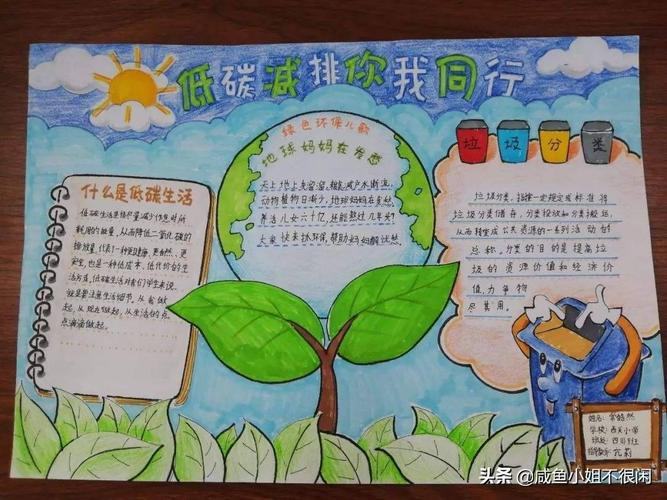 低碳减排你我同行
什么是低碳生活
低碳生活是指尽量减少作息时所
耗用的能量,从而降低二氧化碳的
排放量。代表了一种更健康、更自然、更
安全,也是一种低成本、低代价的生
活方式。低碳生活对我们学生来说,
就是要注意生活细节。从省做
起,从现在做起,从生活的点
点滴滴做起。
绿色环保儿歌
地球妈妈在发愁
天上地上
动物植物日渐少,地球妈妈在
养活儿女六十亿,还能熬过几年关?
大家快来环保,帮助妈妈解忧愁
垃圾分类
垃圾分类,指按一定规定或标准将
垃圾分类储存、分类投放和分类搬运,
从而转变成公共资源的一系列活动的
总称。分类的目的是提高垃
圾的资源价值和经济价
值,力争物
尽其用。
姓名:
学校:西关小学
班级:四(1)班
指导教师:
头条 @咸鱼小姐不很闲